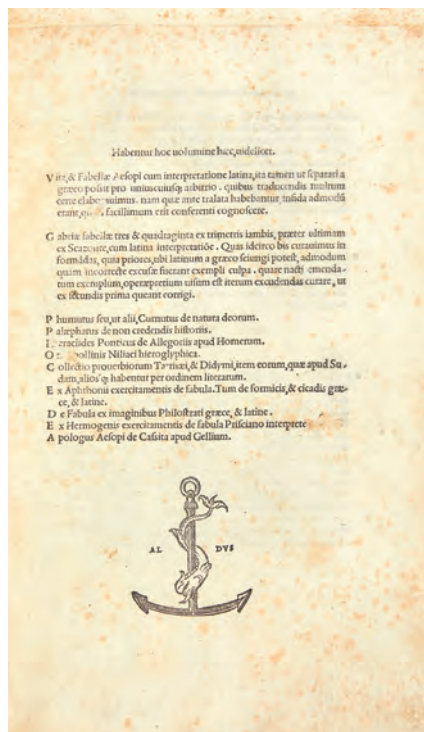 Habentur hoc uolumine hæc, uidelicet.
Vita, & Fabellæ Aesopi cum interpretatione latina, ita tamen ut separari a
græco possit pro uniuscuiusq; arbitrio. quibus traducendis multum
certe elaborauimus. nam quæ ante tralata habebantur, infida admodū
erant, quod facillimum erit conferenti cognoscere.
Gabriæ fabellæ tres & quadraginta ex trimetris iambis, præter ultimam
ex Scazonte, cum latina interpretatiōe. Quas idcirco bis curauimus in
formādas, quia priores, ubi latinum a græco seiungi potest, admodum
quam incorrecte excusæ fuerant exempli culpa. quare nacti emenda-
tum exemplum, operæpretium uisum est iterum excudendas curare, ut
ex secundis prima queant corrigi.
Phurnutus seu, ut alii, Curnutus de natura deorum.
Palæphatus de non credendis historiis.
Heraclides Ponticus de Allegoriis apud Homerum.
Ori Apollinis Niliaci hieroglyphica.
Collectio prouerbiorum Tarrhæi, & Didymi, item eorum, quæ apud Su-
dam, aliosq; habentur per ordinem literarum.
Ex Aphthonii exercitamentis de fabula. Tum de formicis, & cicadis græ-
ce, & latine.
De Fabula ex imaginibus Philostrati græce, & latine.
Ex Hermogenis exercitamentis de fabula Prisciano interprete
Apologus Aesopi de Cassita apud Gellium.
AL DVS